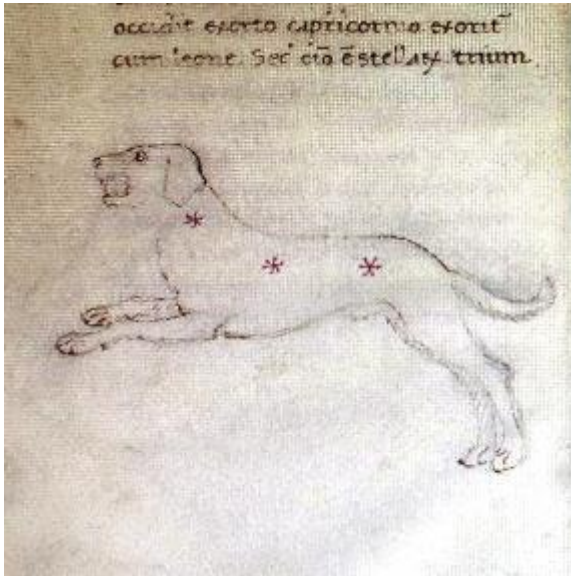 occidit exorto capricorno exorit̄
cum leone. Sed̕ om̄ ē stellaꝝ trium